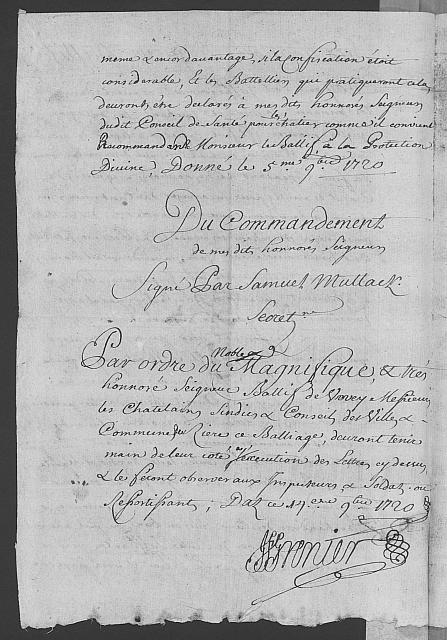 meme & encor davantage, si la confiscation étoit
considerable, Et les Battelliers qui pratiqueront cela
devront être declarés à mes dits honnorés Seigneurs
dudit Conseil de Santé pour les chatier comme il convient
Recommandant Monsieur le Ballif à la Protection
Divine, Donné le 5.me 9bre 1720
Du Commandement
de mes dits honnorés Seigneurs
Signé Par Samuel Mullack.
Secret.re
Par ordre du Noble & Magnifique, & très
honnoré Seigneur Ballif de Vevey Messieurs
les Chatelains Sindics & Conseils des Villes &
Commune du Riere ce Balliage, devront tenir
main de leur coté à l'execution des Lettres cy dessus
& les feront observer aux Inspecteurs & Soldats ou
Ressortissants; Dat ce 14.eme 9bre 1720